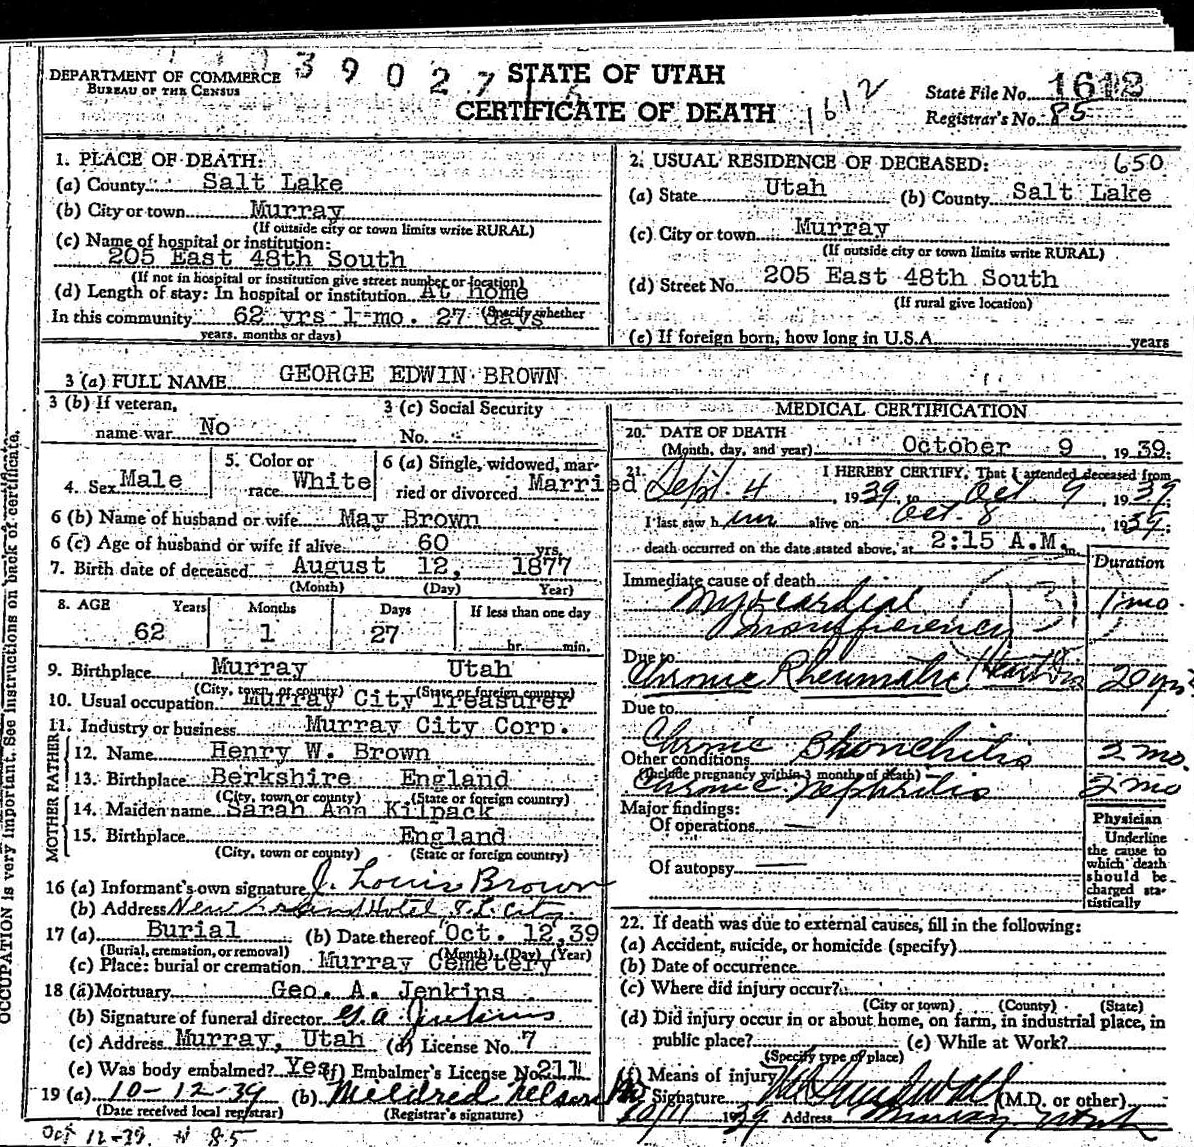 DEPARTMENT OF COMMERCE
BUREAU OF THE CENSUS
39027
STATE OF UTAH
CERTIFICATE OF DEATH
1612
State File No. 1612
Registrar's No. 85
1. PLACE OF DEATH:
(a) County Salt Lake
(b) City or town Murray
(If outside city or town limits write RURAL)
(c) Name of hospital or institution:
205 East 48th South
(If not in hospital or institution give street number or location)
(d) Length of stay: In hospital or institution At home
In this community 62 yrs 1 mo. 27 days (Specify whether
years, months or days)
2. USUAL RESIDENCE OF DECEASED: 650
(a) State Utah (b) County Salt Lake
(c) City or town Murray
(If outside city or town limits write RURAL)
(d) Street No. 205 East 48th South
(If rural give location)
(e) If foreign born, how long in U.S.A. years
3 (a) FULL NAME GEORGE EDWIN BROWN
3 (b) If veteran,
name war No
3 (c) Social Security
No.
4. Sex Male
5. Color or
race White
6 (a) Single, widowed, mar-
ried or divorced Married
6 (b) Name of husband or wife May Brown
6 (c) Age of husband or wife if alive 60 yrs.
7. Birth date of deceased August 12, 1877
(Month) (Day) Year)
8. AGE Years Months Days If less than one day
62 1 27 hr. min.
9. Birthplace Murray Utah
(City, town, or county) (State or foreign country)
10. Usual occupation Murray City Treasurer
11. Industry or business Murray City Corp.
FATHER
12. Name Henry W. Brown
13. Birthplace Berkshire England
(City, town or county) (State or foreign country)
MOTHER
14. Maiden name Sarah Ann Kilpack
15. Birthplace England
(City, town or county) (State or foreign country)
16 (a) Informant's own signature J. Louis Brown
(b) Address New Hotel, S. L. City
17 (a) Burial (b) Date thereof Oct. 12, 39
(Burial, cremation, or removal) (Month) (Day) (Year)
(c) Place: burial or cremation Murray Cemetery
18 (a) Mortuary Geo. A. Jenkins
(b) Signature of funeral director G. A. Jenkins
(c) Address Murray, Utah (d) License No. 7
(e) Was body embalmed? Yes (f) Embalmer's License No. 211
19 (a) 10-12-39 (b) Mildred Nelson
(Date received local registrar) (Registrar's signature)
Oct 12-39 # 85
MEDICAL CERTIFICATION
20. DATE OF DEATH
(Month, day, and year) October 9, 1939.
21. I HEREBY CERTIFY, That I attended deceased from
Sept. 4, 1939, to Oct 9, 1939
I last saw him alive on Oct. 8, 1939.
death occurred on the date stated above, at 2:15 A.M. m.
Duration
Immediate cause of death
Myocardial 1 mo
insufficiency
Due to
Chronic Rheumatic Heart Dis 20 yrs
Due to
Chronic Bronchitis 2 mo.
Other conditions
(Include pregnancy within 3 months of death)
Chronic Nephritis 2 mo
Major findings:
Of operations
Of autopsy
Physician
Underline
the cause to
which death
should be
charged sta-
tistically
22. If death was due to external causes, fill in the following:
(a) Accident, suicide, or homicide (specify)
(b) Date of occurrence
(c) Where did injury occur?
(City or town) (County) (State)
(d) Did injury occur in or about home, on farm, in industrial place, in
public place? (e) While at Work?
(Specify type of place)
(f) Means of injury
Signature (M.D. or other)
10/11 1939 Address Murray, Utah
OCCUPATION is very important. See instructions on back of certificate.